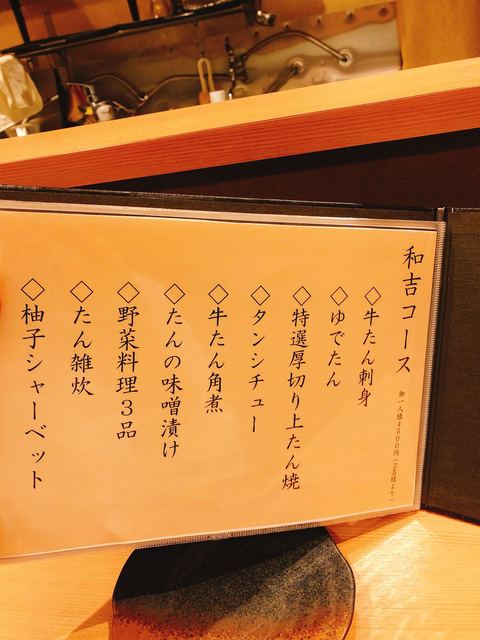 和吉コース
御一人様4500円(2名様より)
◇牛たん刺身
◇ゆでたん
◇特選厚切り上たん焼
◇タンシチュー
◇牛たん角煮
◇たんの味噌漬け
◇野菜料理3品
◇たん雑炊
◇柚子シャーベット